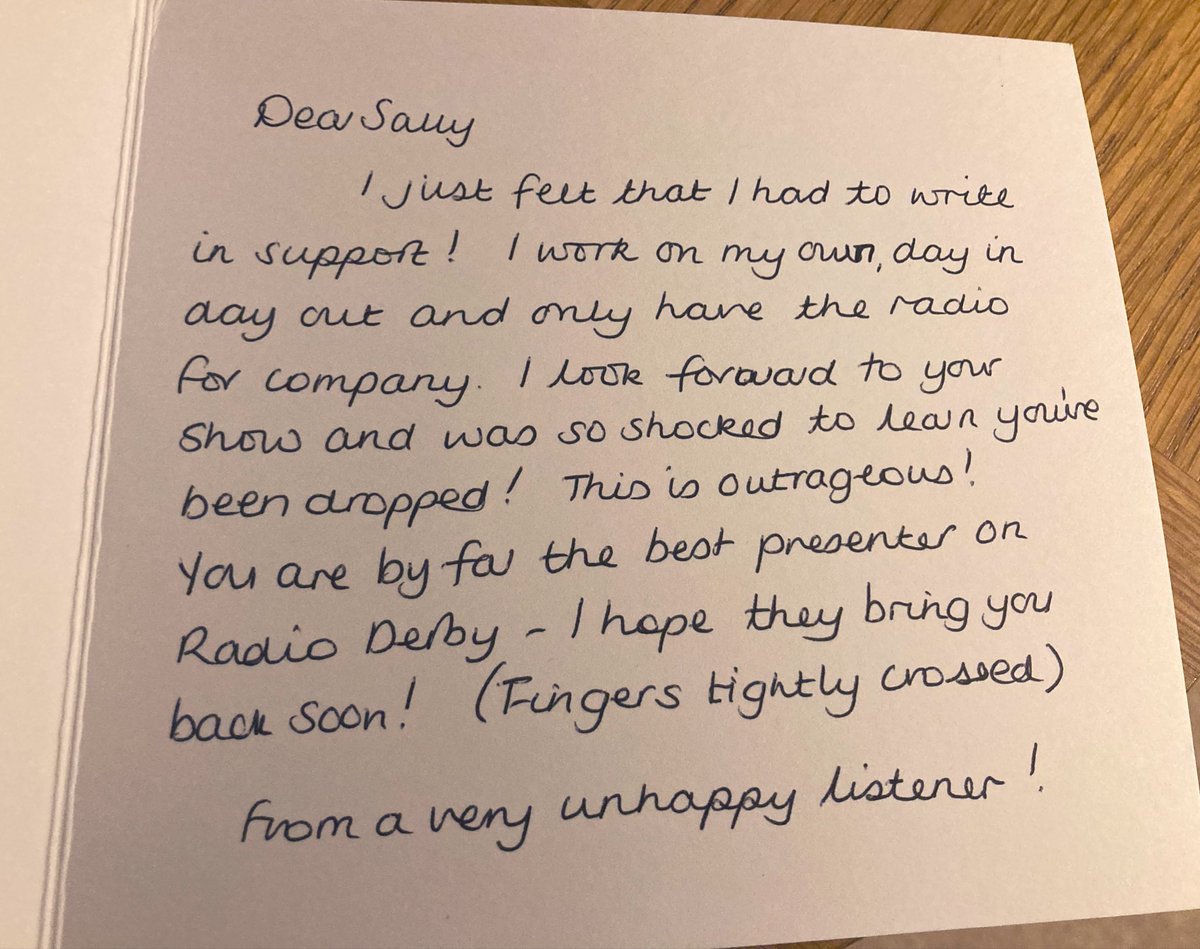 Dear Sally
I just felt that I had to write
in support! I work on my own, day in
day out and only have the radio
for company. I look forward to your
show and was so shocked to learn you've
been dropped! This is outrageous!
You are by far the best presenter on
Radio Derby - I hope they bring you
back soon! (Fingers tightly crossed)
From a very unhappy listener!